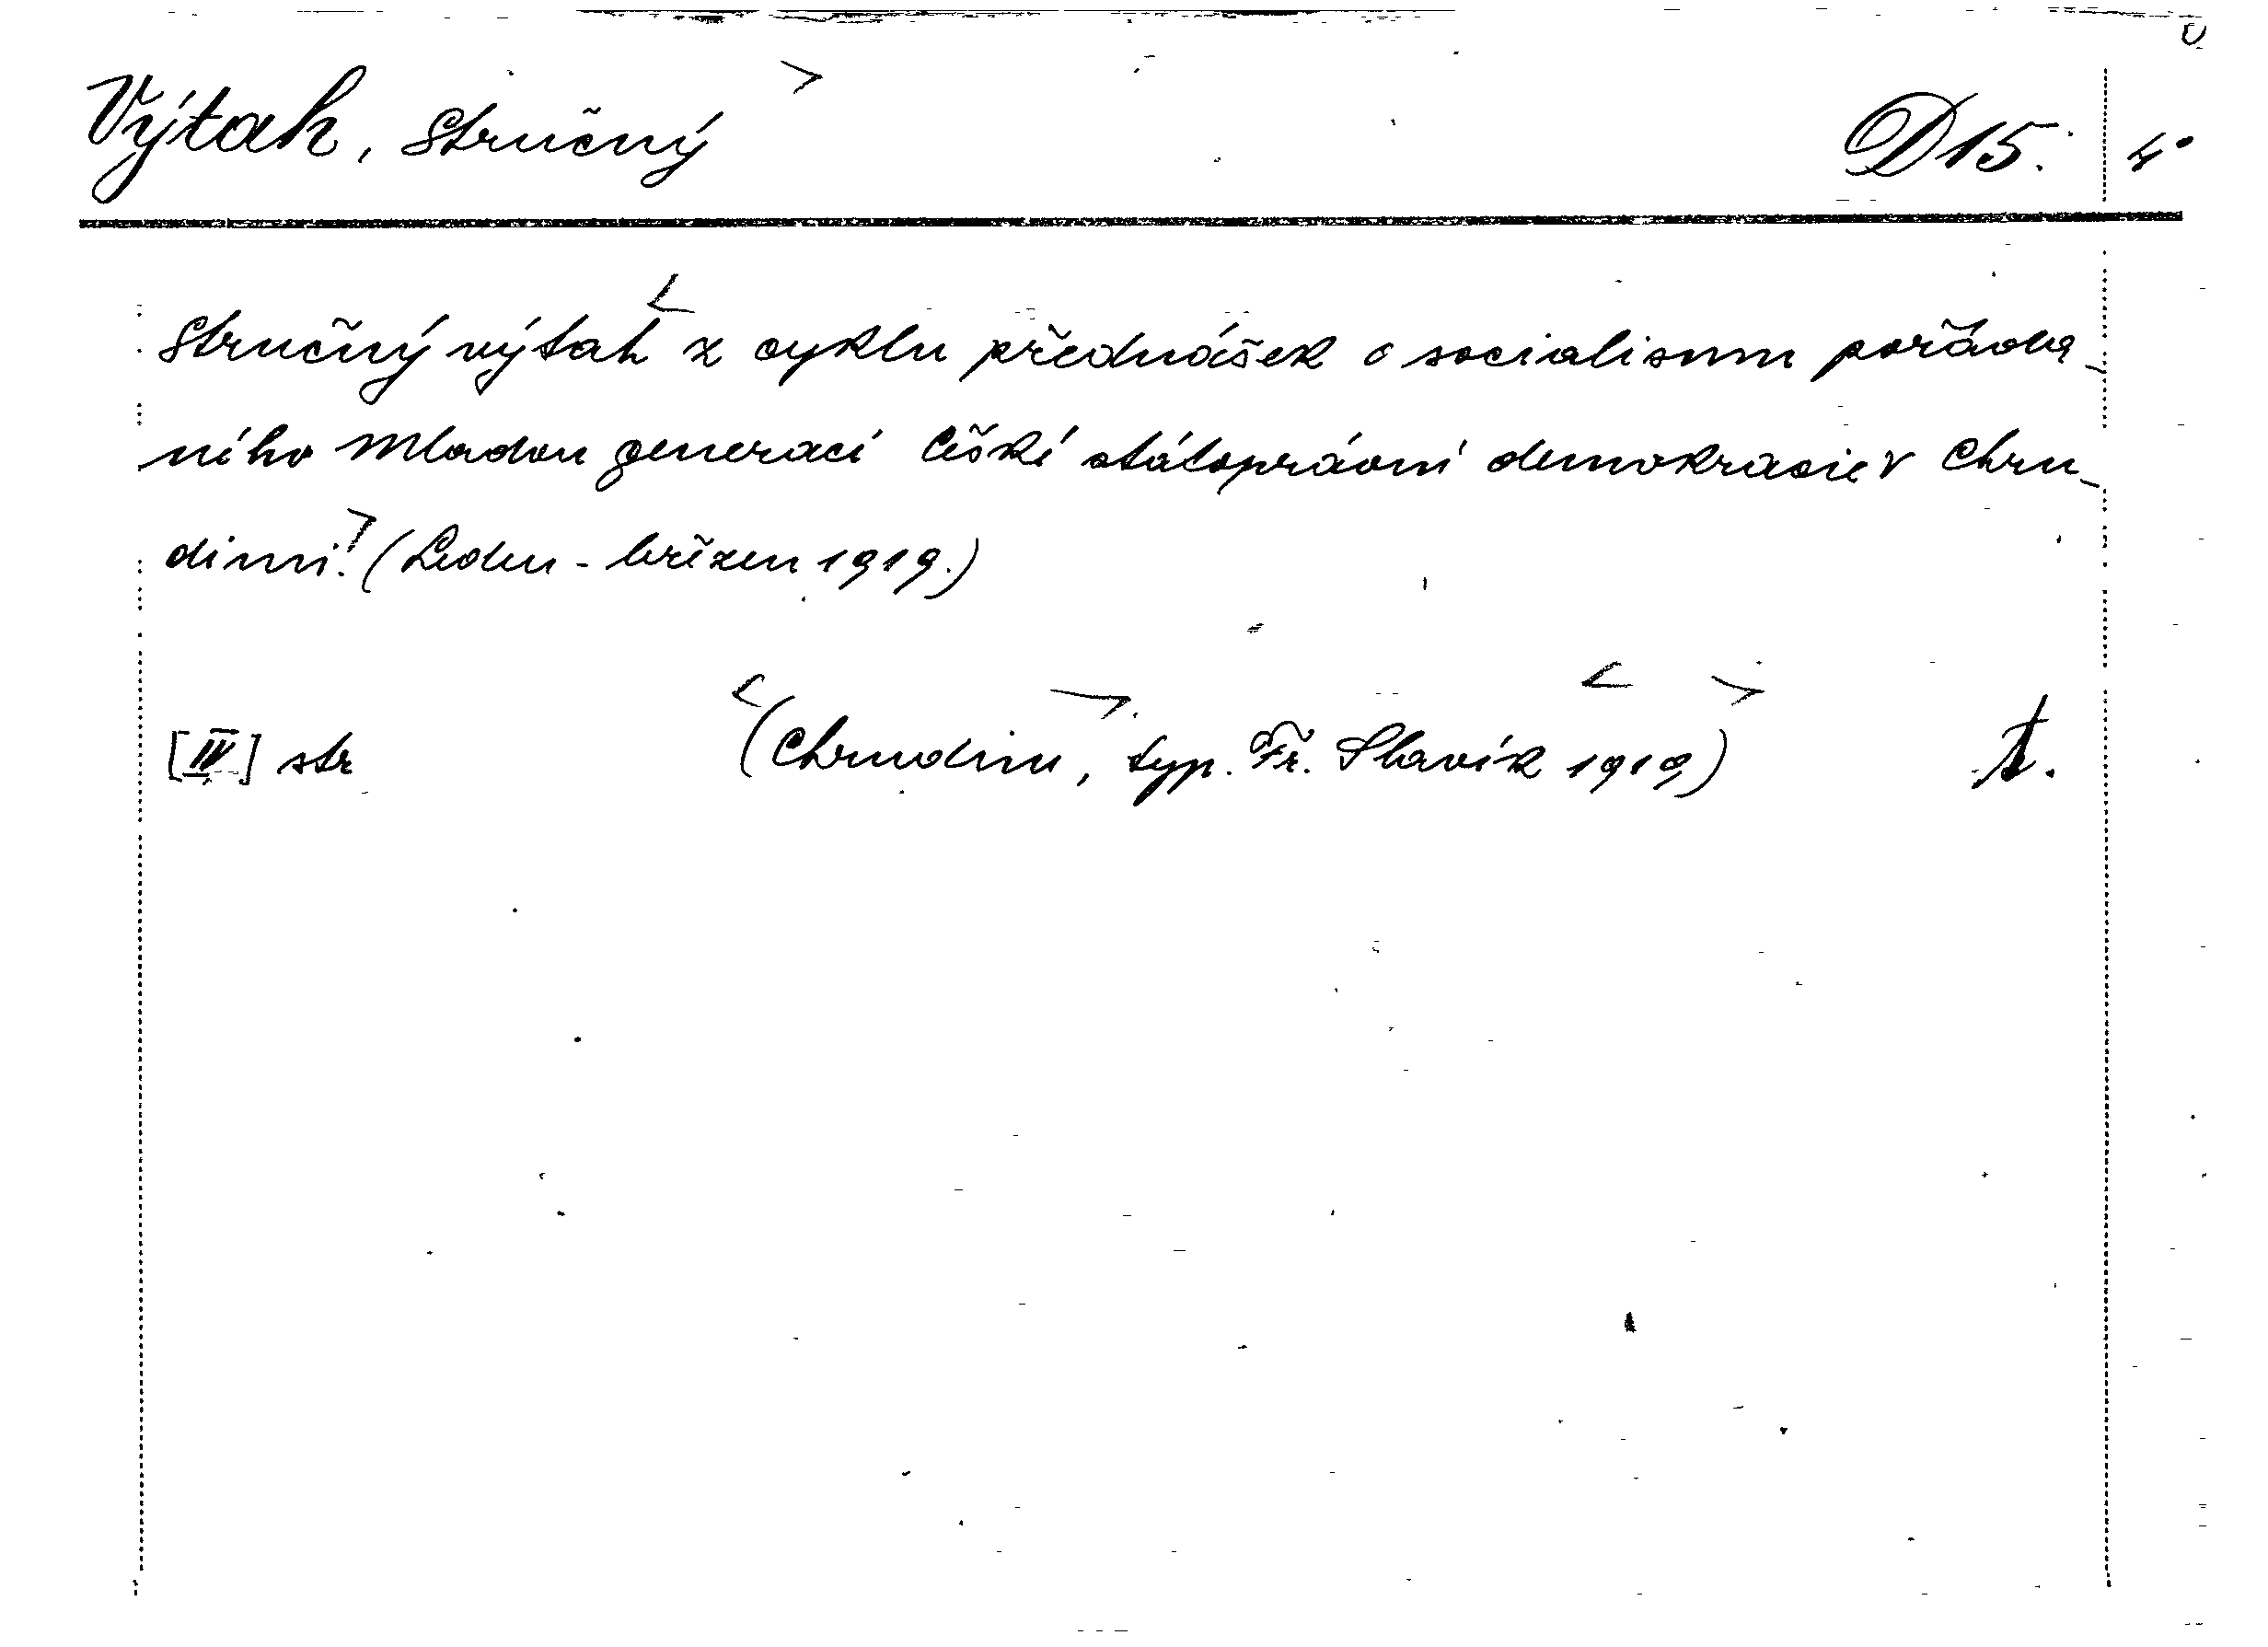 Výtah, stručný D15. 4°
Stručný výtah z cyklu přednášek o socialismu pořáda-
ného Mladou generací České státoprávní demokracie v Chru-
dimi. (Leden - březen 1919.)
[IV] str (Chrudim, typ. Fr. Slavík 1919)